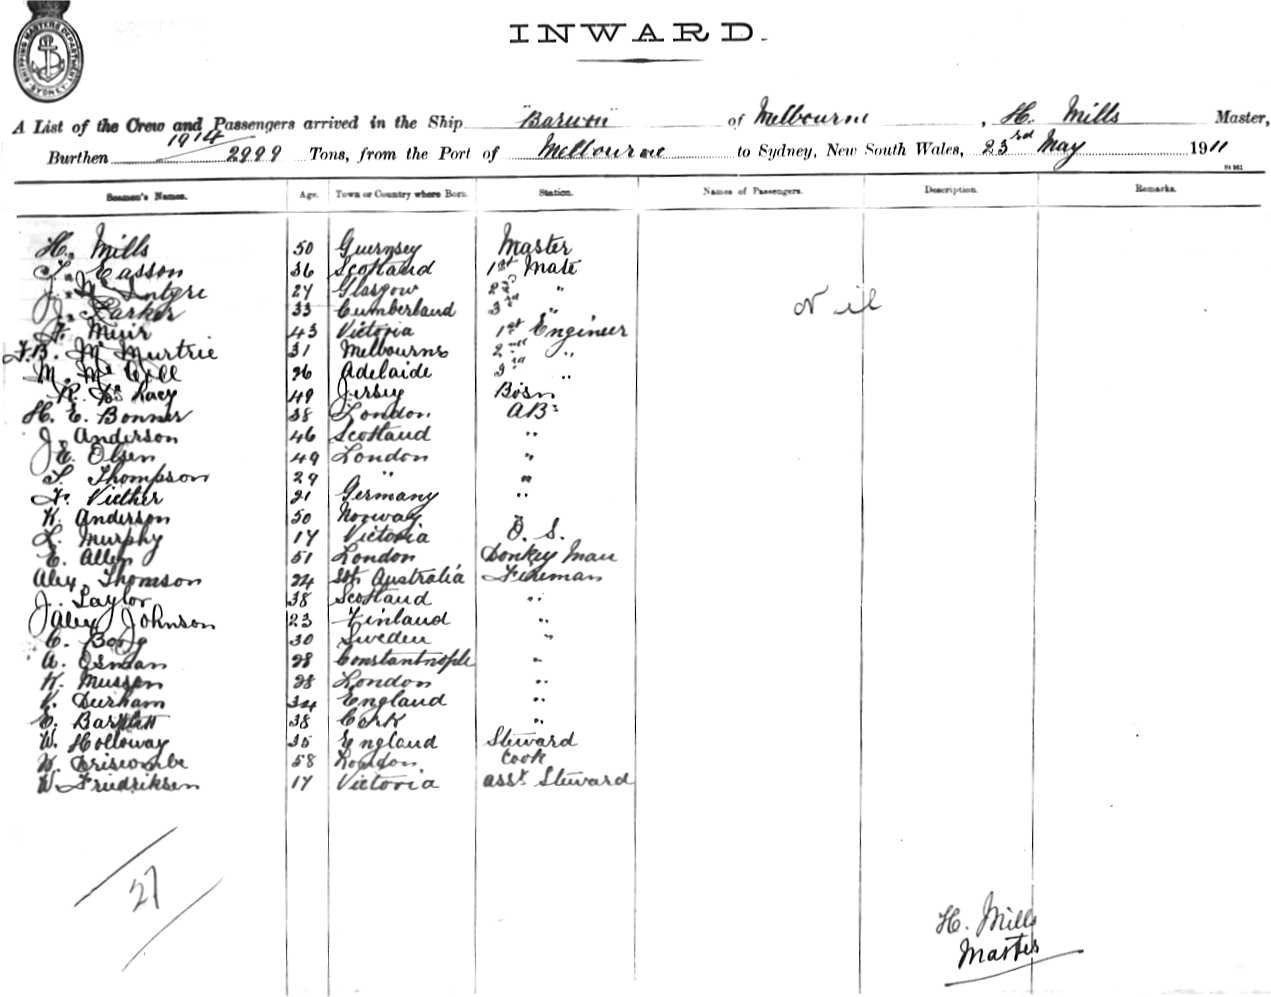 SHIPPING MASTERS DEPARTMENT SYDNEY
INWARD.
A List of the Crew and Passengers arrived in the Ship "Barwon" of Melbourne, H. Mills Master,
1914
Burthen 2999 Tons, from the Port of Melbourne to Sydney, New South Wales, 23rd May 1911
Seamen's Names. Age. Town or Country where Born. Station. Names of Passengers. Description. Remarks.
H. Mills 50 Guernsey Master
T. Easson 36 Scotland 1st Mate
J. Mc Intyre 27 Glasgow 2nd "
J. Parker 33 Cumberland 3rd "
Nil
F. Muir 43 Victoria 1st Engineer
F.B. Mc Murtrie 31 Melbourne 2nd "
M. Mc Gill 26 Adelaide 3rd "
R. Lacy 49 Jersey Bosn
H. E. Bonner 38 London AB:
J. Anderson 46 Scotland "
J. E. Olsen 49 London "
T. Thompson 29 " "
F. Viether 21 Germany "
K. Anderson 50 Norway "
L. Murphy 17 Victoria O. S.
E. Allen 51 London Donkey Man
Alex. Thomson 24 Sth Australia Fireman
J. Taylor 38 Scotland "
Alex Johnson 23 Finland "
C. Borg 30 Sweden "
A. Osman 28 Constantinople "
K. Mussen 28 London "
V. Durham 34 England "
E. Bartlett 38 Cork "
W. Holloway 35 England Steward
W. Driscombe 58 London. Cook
W. Fredriksen 17 Victoria asst. Steward
27
H. Mills
Master